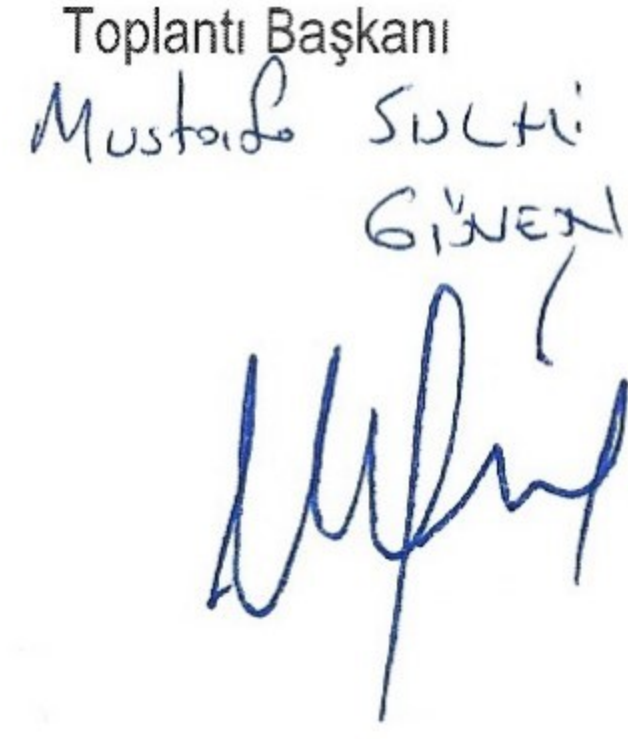 Toplantı Başkanı
Mustafa SULHİ
GÜVEN